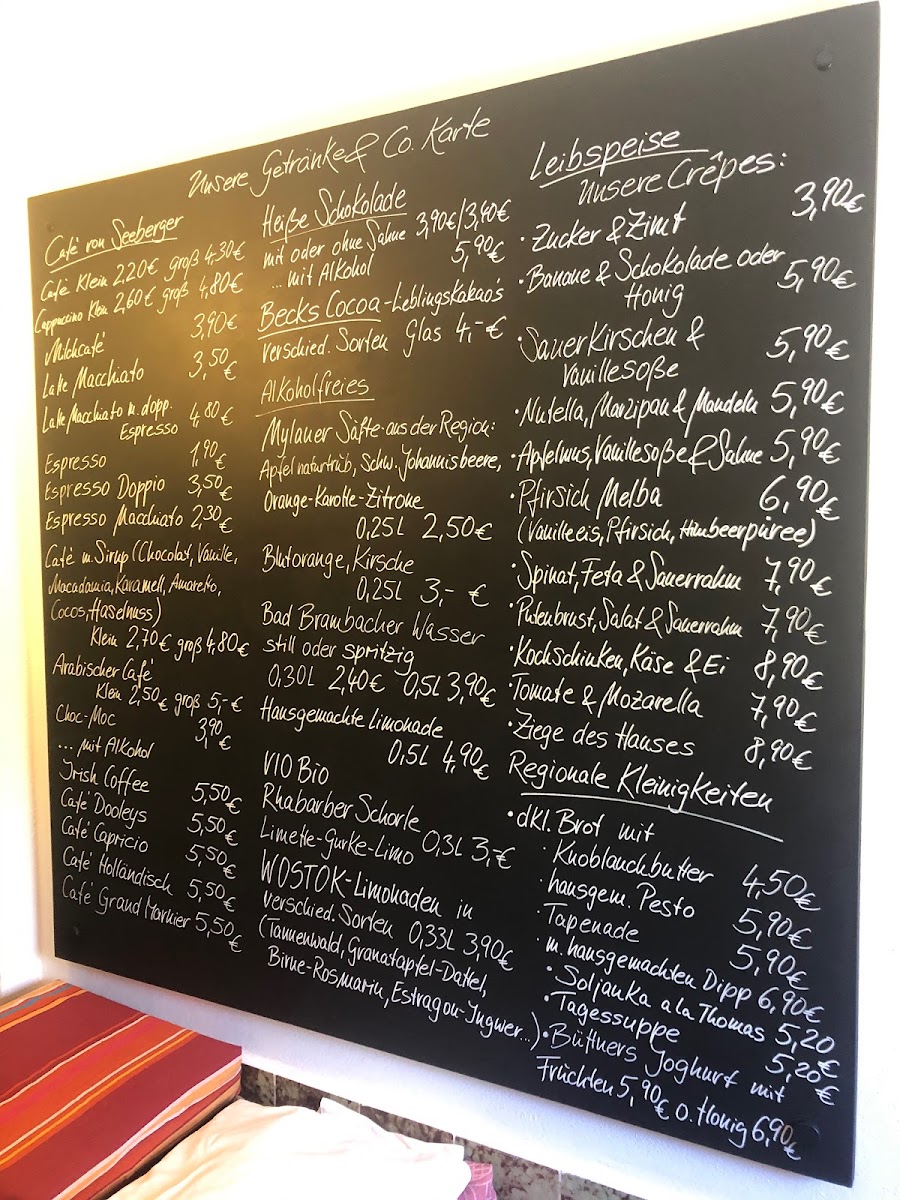 Unsere Getränke & Co. Karte
Café von Seeberger
Café Klein 2,20€ groß 4,30€
Cappuccino Klein 2,60€ groß 4,80€
Milchcafé 3,90€
Latte Macchiato 3,50€
Latte Macchiato m. dopp.
Espresso 4,80€
Espresso 1,90€
Espresso Doppio 3,50€
Espresso Macchiato 2,30€
Café m. Sirup (Chocolat, Vanille,
Macadamia, Karamell, Amaretto,
Cocos, Haselnuss)
Klein 2,70€ groß 4,80€
Arabischer Café
Klein 2,50€ groß 5,-€
Choc-Moc 3,90€
... mit Alkohol
Irish Coffee 5,50€
Café Dooleys 5,50€
Café Capricio 5,50€
Café Holländisch 5,50€
Café Grand Marnier 5,50€
Heiße Schokolade
mit oder ohne Sahne 3,90€/3,40€
... mit Alkohol 5,90€
Becks Cocoa-Leblingskakao's
verschied. Sorten Glas 4,-€
Alkoholfreies
Mylauer Säfte aus der Region:
Apfel naturtrüb, Schw. Johannisbeere,
Orange-Karotte-Zitrone
0,25l 2,50€
Blutorange, Kirsche
0,25l 3,- €
Bad Brambacher Wasser
still oder spritzig
0,30l 2,40€ 0,5l 3,90€
Hausgemachte Limonade
0,5l 4,90€
VIO Bio
Rhabarber Schorle
Limette-Gurke-Limo 0,3l 3,-€
WOSTOK-Limonaden in
verschied. Sorten 0,33l 3,90€
(Tannenwald, Granatapfel-Dattel,
Birne-Rosmarin, Estragon-Ingwer...)
Leibspeise
Unsere Crêpes:
· Zucker & Zimt 3,90€
· Banane & Schokolade oder
Honig 5,90€
· Sauerkirschen &
Vanillesoße 5,90€
· Nutella, Marzipan & Mandeln 5,90€
· Apfelmus, Vanillesoße & Sahne 5,90€
· Pfirsich Melba 6,90€
(Vanilleeis, Pfirsich, Himbeerpüree)
· Spinat, Feta & Sauerrahm 7,90€
· Putenbrust, Salat & Sauerrahm 7,90€
· Kochschinken, Käse & Ei 8,90€
· Tomate & Mozarella 7,90€
· Ziege des Hauses 8,90€
Regionale Kleinigkeiten
· dkl. Brot mit
· Knoblauchbutter 4,50€
· hausgem. Pesto 5,90€
· Tapenade 5,90€
· m. hausgemachten Dipp 6,90€
· Soljanka a la Thomas 5,20€
· Tagessuppe 5,20€
· Büttners Joghurt mit
Früchten 5,90€ o. Honig 6,90€